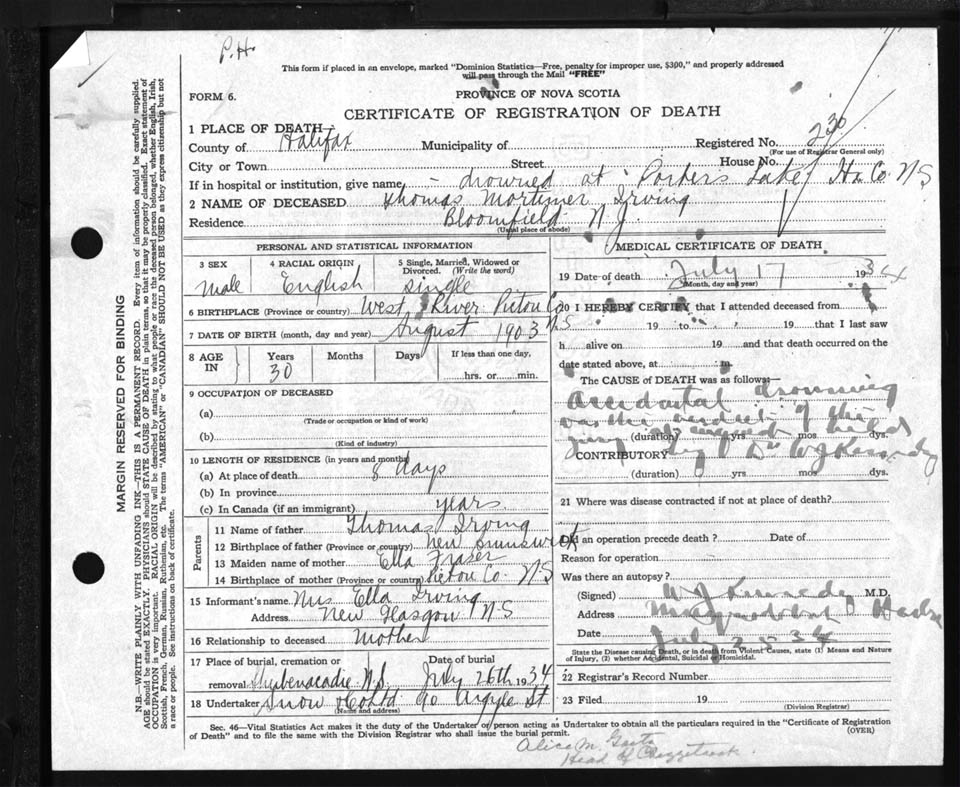 P.H.
This form if placed in an envelope, marked "Dominion Statistics—Free, penalty for improper use, $300," and properly addressed
will pass through the Mail "FREE"
FORM 6.
PROVINCE OF NOVA SCOTIA
CERTIFICATE OF REGISTRATION OF DEATH
1 PLACE OF DEATH
County of Halifax Municipality of Registered No. 230
(For use of Registrar General only)
City or Town Street House No.
If in hospital or institution, give name - drowned at Porters Lake Hx Co NS
2 NAME OF DECEASED Thomas Mortimer Irving
Residence Bloomfield N.J.
(Usual place of abode)
PERSONAL AND STATISTICAL INFORMATION
3 SEX 4 RACIAL ORIGIN 5 Single, Married, Widowed or
Divorced. (Write the word)
Male English single
6 BIRTHPLACE (Province or country) West River Pictou Co NS
7 DATE OF BIRTH (month, day and year) August 1903
8 AGE IN Years Months Days If less than one day,
30 hrs. or min.
9 OCCUPATION OF DECEASED
(a)
(Trade or occupation or kind of work)
(b)
(Kind of industry)
10 LENGTH OF RESIDENCE (in years and months)
(a) At place of death 8 days
(b) In province
(c) In Canada (if an immigrant) years
Parents
11 Name of father Thomas Irving
12 Birthplace of father (Province or country) New Brunswick
13 Maiden name of mother Ella Fraser
14 Birthplace of mother (Province or country) Pictou Co. NS
15 Informant's name Mrs Ella Irving
Address New Glasgow NS
16 Relationship to deceased Mother
17 Place of burial, cremation or Date of burial
removal Shubenacadie N.S. July 26th 1934
18 Undertaker Snow & Co Ltd 90 Argyle St
(Name and address)
MEDICAL CERTIFICATE OF DEATH
19 Date of death July 17 1934
(Month, day and year)
20 I HEREBY CERTIFY that I attended deceased from
19 to 19 that I last saw
h alive on 19 and that death occurred on the
date stated above, at m.
The CAUSE of DEATH was as follows:—
Accidental drowning
was the verdict of the
jury at inquest held
(duration) yrs mos dys.
by Dr WJ Kennedy
CONTRIBUTORY
(duration) yrs mos dys.
21 Where was disease contracted if not at place of death?
Did an operation precede death? Date of
Reason for operation
Was there an autopsy?
(Signed) WJ Kennedy M.D.
Address
Date July 34
State the Disease causing Death, or in death from Violent Causes, state (1) Means and Nature
of Injury, (2) whether Accidental, Suicidal or Homicidal.
22 Registrar's Record Number
23 Filed 19
(Division Registrar)
Sec. 46—Vital Statistics Act makes it the duty of the Undertaker or person acting as Undertaker to obtain all the particulars required in the "Certificate of Registration
of Death" and to file the same with the Division Registrar who shall issue the burial permit. (OVER)
Alice M.
Head of Chezzetcook
MARGIN RESERVED FOR BINDING
N.B.—WRITE PLAINLY WITH UNFADING INK—THIS IS A PERMANENT RECORD. Every item of information should be carefully supplied.
AGE should be stated EXACTLY. PHYSICIANS should STATE CAUSE OF DEATH in plain terms, so that it may be properly classified. Exact statement of
OCCUPATION is very important. RACIAL ORIGIN will be described by stating to what people or race the deceased person belonged, whether English, Irish,
Scottish, French, German, Russian, Ruthenian, etc. The terms "AMERICAN" or "CANADIAN" SHOULD NOT BE USED as they express citizenship but not
a race or people. See instructions on back of certificate.